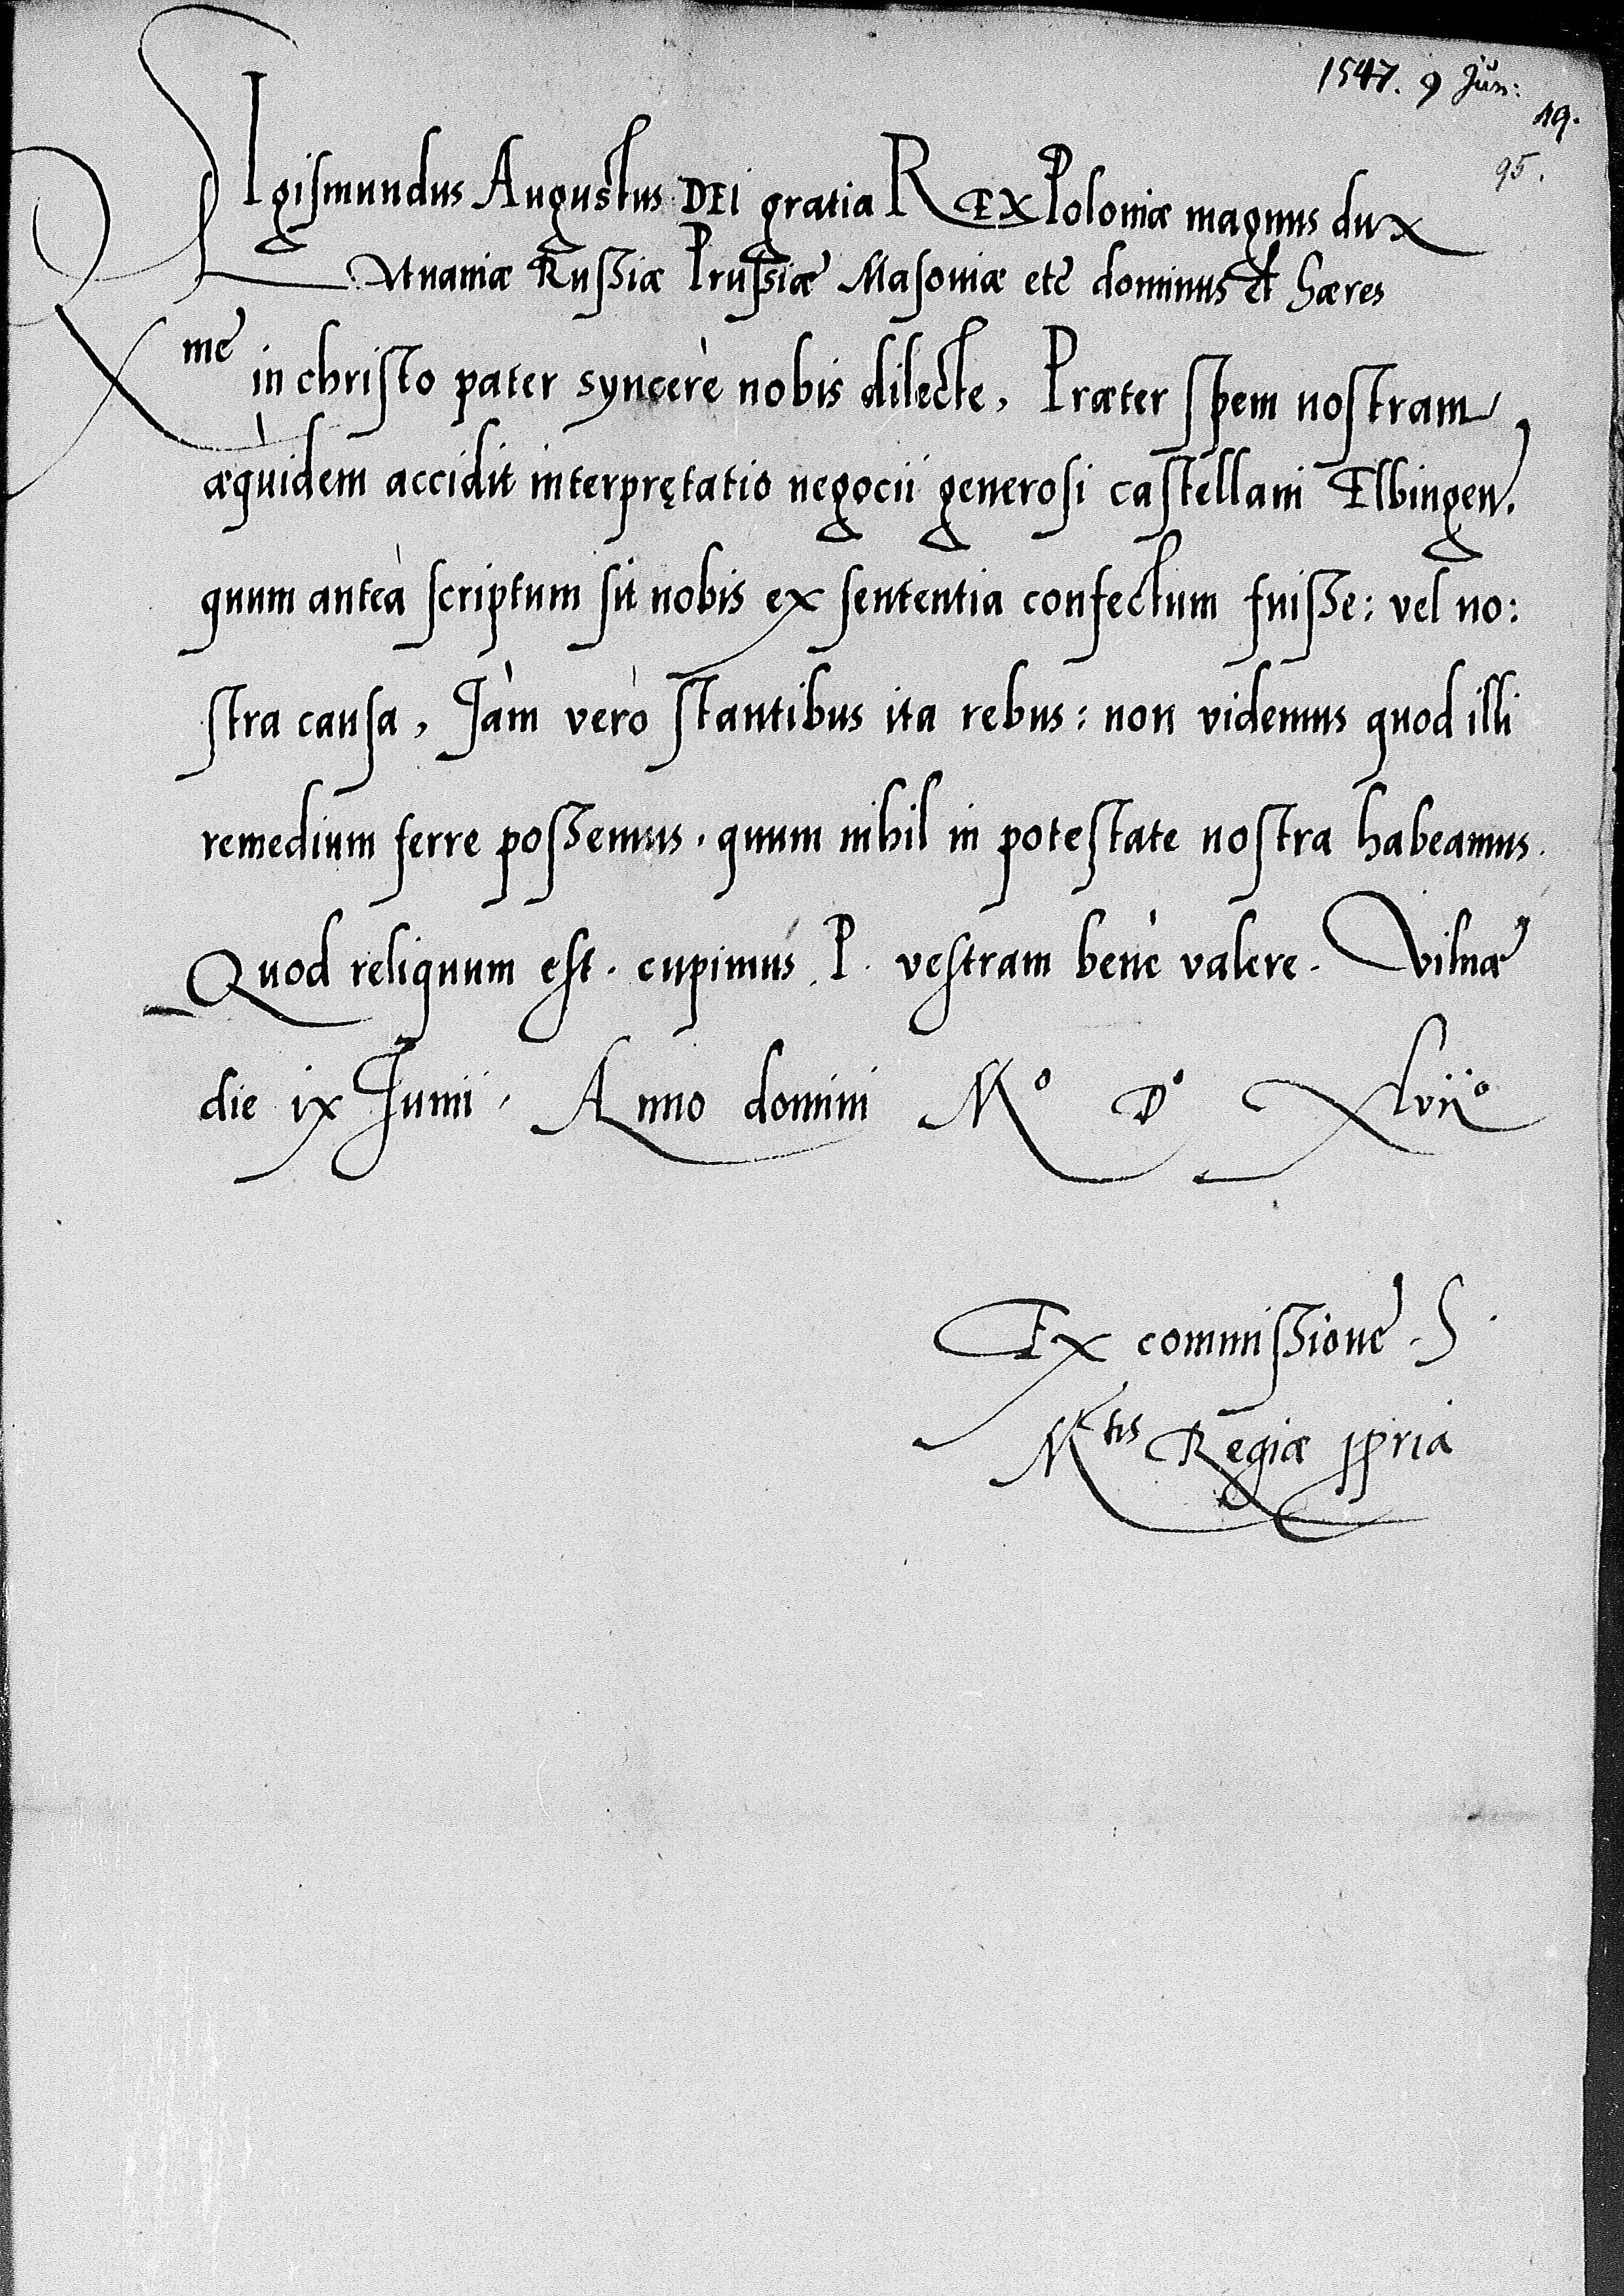 1547. 9 Jun:
49.
95.
SIgismundus Augustus DEI gratia REX Poloniæ magnus dux
Lituaniæ Russiæ Prussiæ Masoviæ etc dominus et hæres
Rme in christo pater syncerè nobis dilecte, Præter spem nostram
æquidem accidit interpretatio negocii generosi castellani Elbingen.
quum anteà scriptum sit nobis ex sententia confectum fuisse: vel no:
stra causa, Jàm verò stantibus ita rebus: non videmus quod illi
remedium ferre possemus. quum nihil in potestate nostra habeamus.
Quod reliquum est. cupimus P. vestram benè valere. Vilnæ
die ix Junii. Anno domini Mº Dº Xlviiº
Ex commissione. S.
Mtis Regiæ ppria